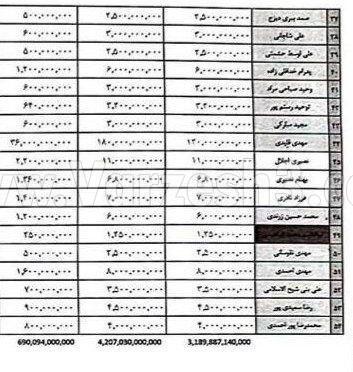 ۳۷ صمد پیری دیزج ۲,۵۰۰,۰۰۰,۰۰۰ ۲,۵۰۰,۰۰۰,۰۰۰ ۵۰۰,۰۰۰,۰۰۰
۳۸ علی شاچلی ۳,۰۰۰,۰۰۰,۰۰۰ ۳,۰۰۰,۰۰۰,۰۰۰ ۶۰۰,۰۰۰,۰۰۰
۳۹ علی اوسط ۲,۵۰۰,۰۰۰,۰۰۰ ۲,۵۰۰,۰۰۰,۰۰۰ ۵۰۰,۰۰۰,۰۰۰
۴۰ پدرام صداقتی زاده ۶,۰۰۰,۰۰۰,۰۰۰ ۶,۰۰۰,۰۰۰,۰۰۰ ۱,۲۰۰,۰۰۰,۰۰۰
۴۱ وحید صباحی ۳,۰۰۰,۰۰۰,۰۰۰ ۳,۰۰۰,۰۰۰,۰۰۰ ۶۰۰,۰۰۰,۰۰۰
۴۲ توحید رستم پور ۳,۲۰۰,۰۰۰,۰۰۰ ۳,۲۰۰,۰۰۰,۰۰۰ ۶۴۰,۰۰۰,۰۰۰
۴۳ مجید ۳,۰۰۰,۰۰۰,۰۰۰ ۳,۰۰۰,۰۰۰,۰۰۰ ۶۰۰,۰۰۰,۰۰۰
۴۴ مهدی قایدی
۴۵ نصیری اجلال ۱۱,۰۰۰,۰۰۰,۰۰۰ ۱۱,۰۰۰,۰۰۰,۰۰۰ ۲,۲۰۰,۰۰۰,۰۰۰
۴۶ بهنام نصیری ۶,۸۰۰,۰۰۰,۰۰۰ ۶,۸۰۰,۰۰۰,۰۰۰ ۱,۳۶۰,۰۰۰,۰۰۰
۴۷ فرزاد نادری ۷,۰۰۰,۰۰۰,۰۰۰ ۷,۰۰۰,۰۰۰,۰۰۰ ۱,۴۰۰,۰۰۰,۰۰۰
۴۸ محمد حسین زرندی ۶,۰۰۰,۰۰۰,۰۰۰ ۶,۰۰۰,۰۰۰,۰۰۰ ۱,۲۰۰,۰۰۰,۰۰۰
۴۹ ۱,۲۵۰,۰۰۰,۰۰۰ ۱,۲۵۰,۰۰۰,۰۰۰ ۲۵۰,۰۰۰,۰۰۰
۵۰ مهدی ۲,۵۰۰,۰۰۰,۰۰۰ ۲,۵۰۰,۰۰۰,۰۰۰ ۵۰۰,۰۰۰,۰۰۰
۵۱ مهدی احمدی ۸,۰۰۰,۰۰۰,۰۰۰ ۸,۰۰۰,۰۰۰,۰۰۰ ۱,۶۰۰,۰۰۰,۰۰۰
۵۲ علی نبی شیخ الاسلامی ۳,۵۰۰,۰۰۰,۰۰۰ ۳,۵۰۰,۰۰۰,۰۰۰ ۷۰۰,۰۰۰,۰۰۰
۵۳ رضا سعیدی پور ۴,۵۰۰,۰۰۰,۰۰۰ ۴,۵۰۰,۰۰۰,۰۰۰ ۹۰۰,۰۰۰,۰۰۰
۵۴ محمدرضا پور احمدی ۴,۰۰۰,۰۰۰,۰۰۰ ۴,۰۰۰,۰۰۰,۰۰۰ ۸۰۰,۰۰۰,۰۰۰
3,189,887,140,000 4,207,030,000,000 690,094,000,000